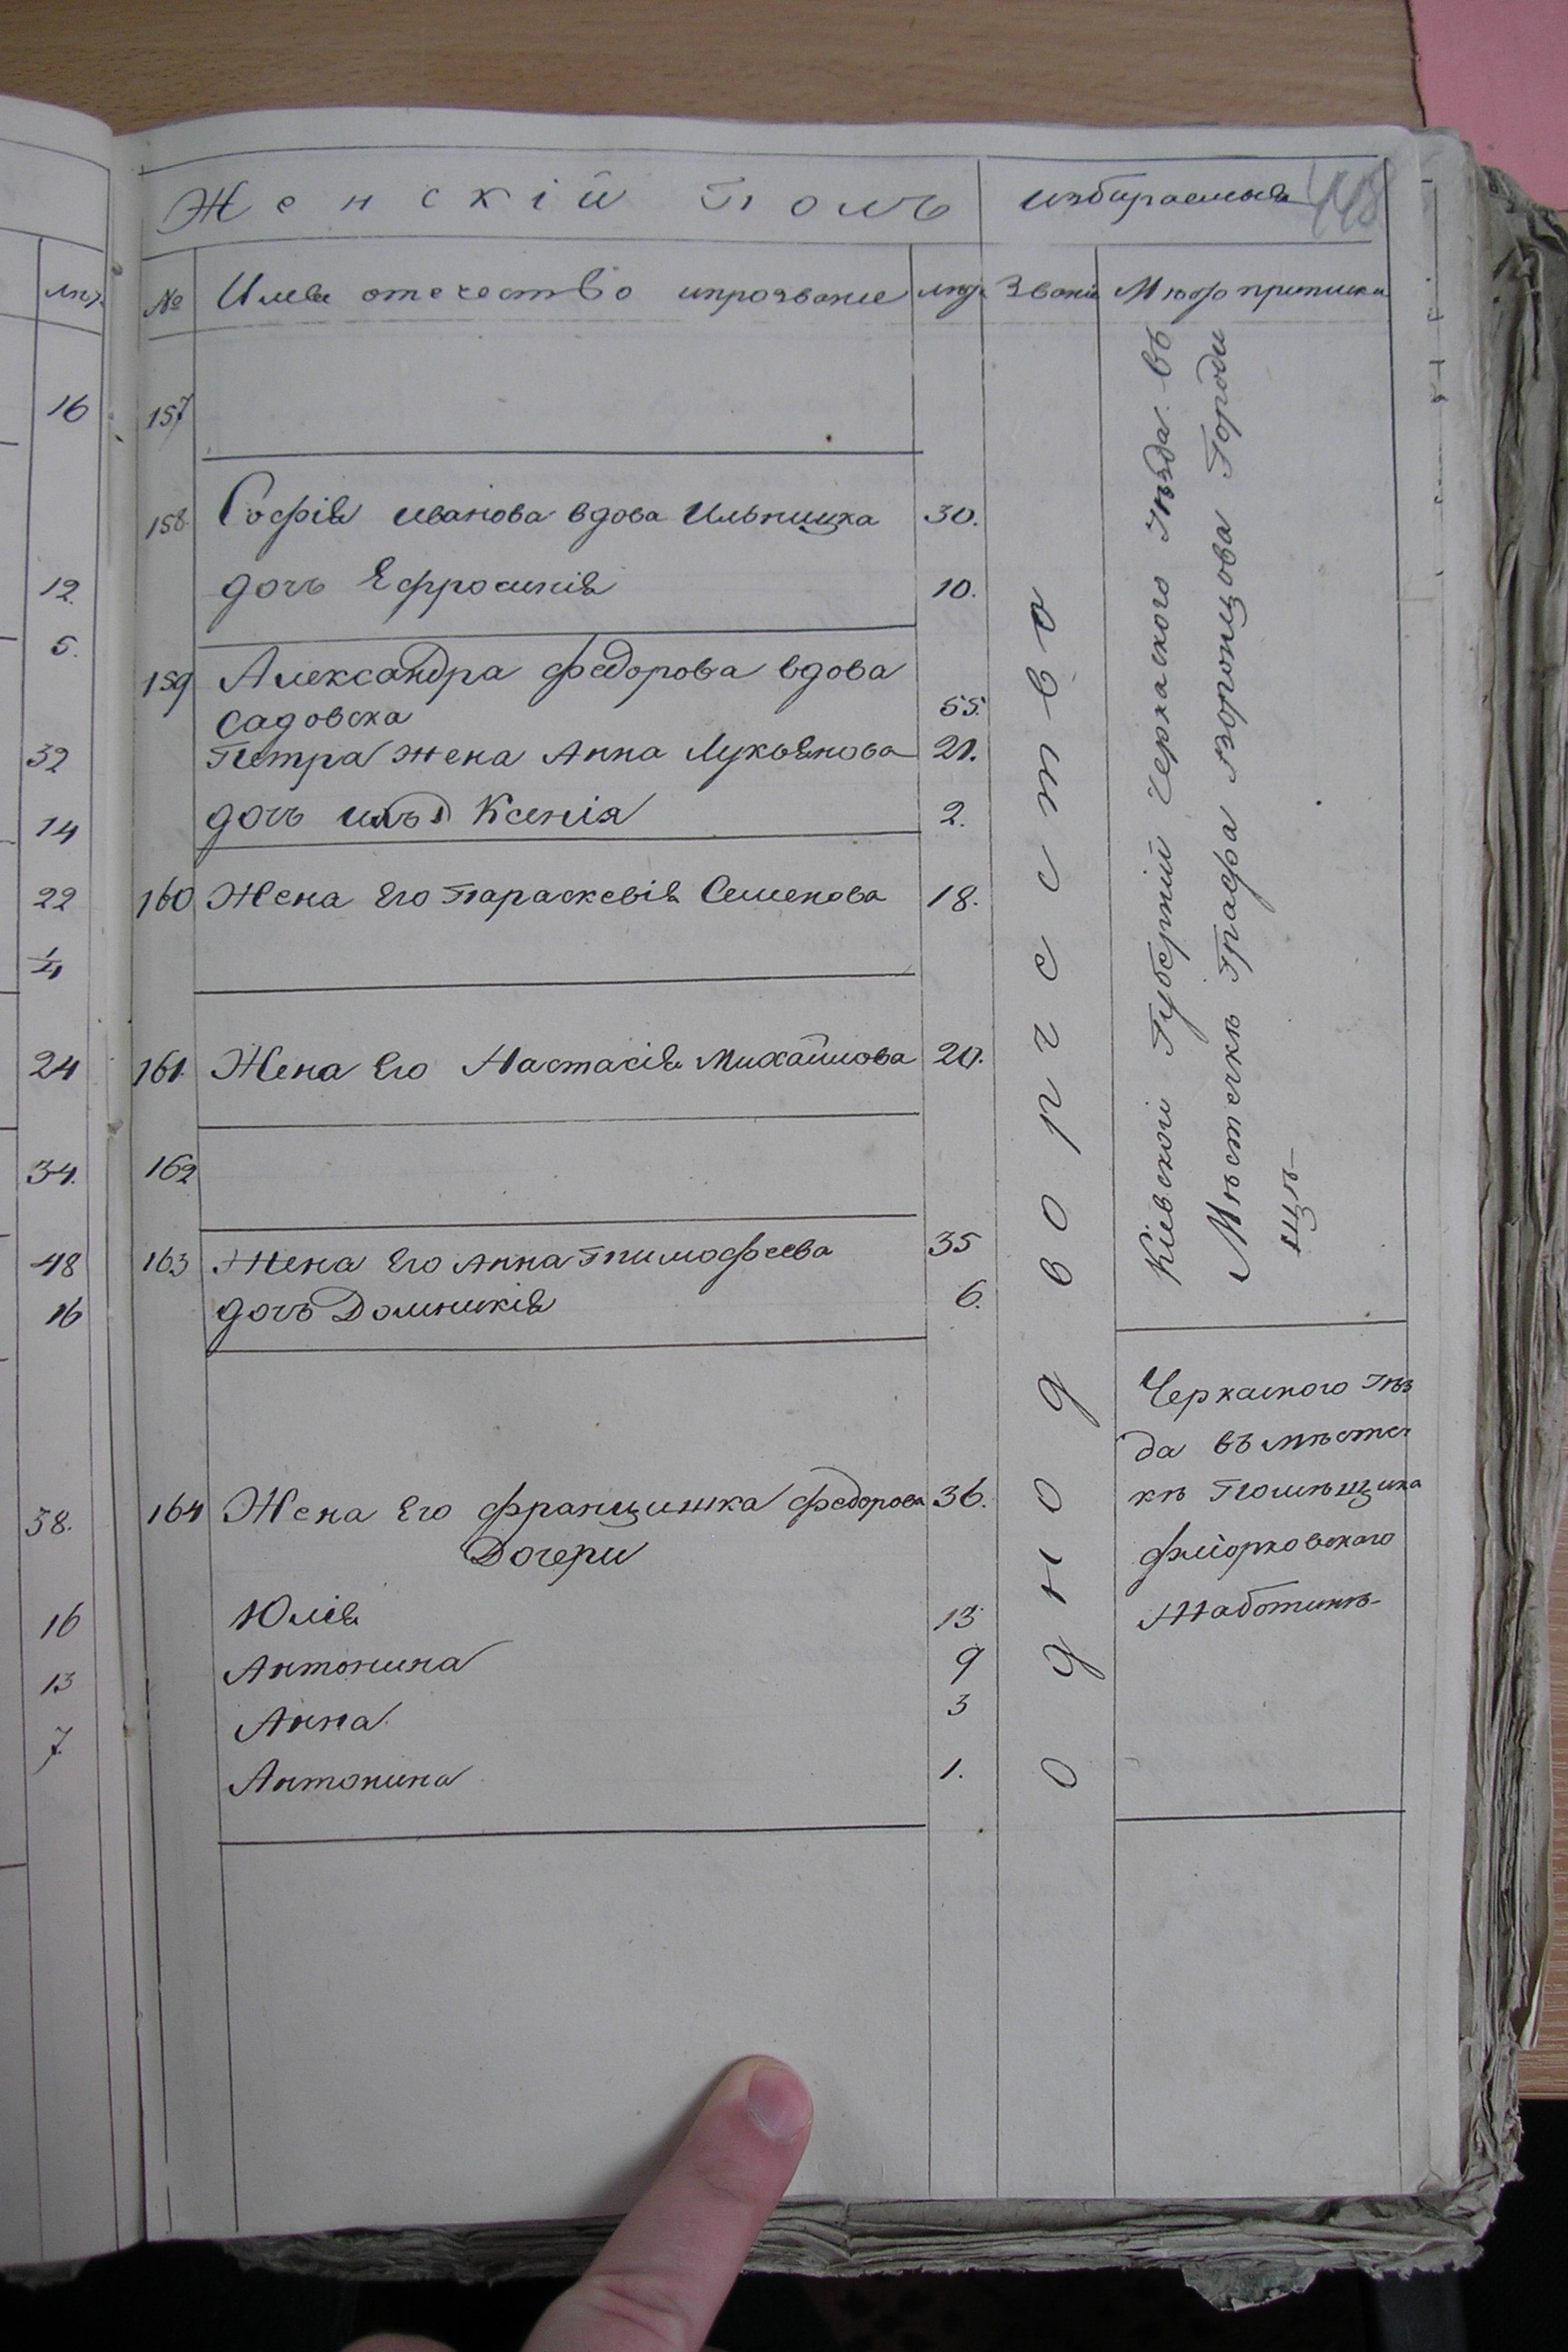 лѣт.
16
12.
5.
32
14
22
1/4
24
34.
48
16
38.
16
13
7.
Женскій Полъ
избираемыя
448
№ Имя отечество ипрозвание лѣт. Звание Мѣсто приписки
157
158. Софія иванова вдова Ильницка 30.
дочь Ефросинія 10.
159 Александра федорова вдова
садовска 55.
Петра жена Анна Лукьянова 21.
дочь ихъ Ксенія 2.
160 Жена Его Параскевія Семенова 18.
161. Жена Его Настасія Михайлова 20.
162
163 Жена Его Анна Тимофеева 35
дочь Домникія 6.
164 Жена Его францишка федорова 36.
Дочери
Юлія 13
Антонина 9
Анна 3
Антонина 1.
однодворчество
Кіевской Губерніи Черкаского Уѣзда въ
Мѣстечкѣ Графа Воронцова Городи
щѣ
Черкаского Уѣз
да въ мѣстеч
кѣ Помѣщика
фліорковского
Жаботинѣ